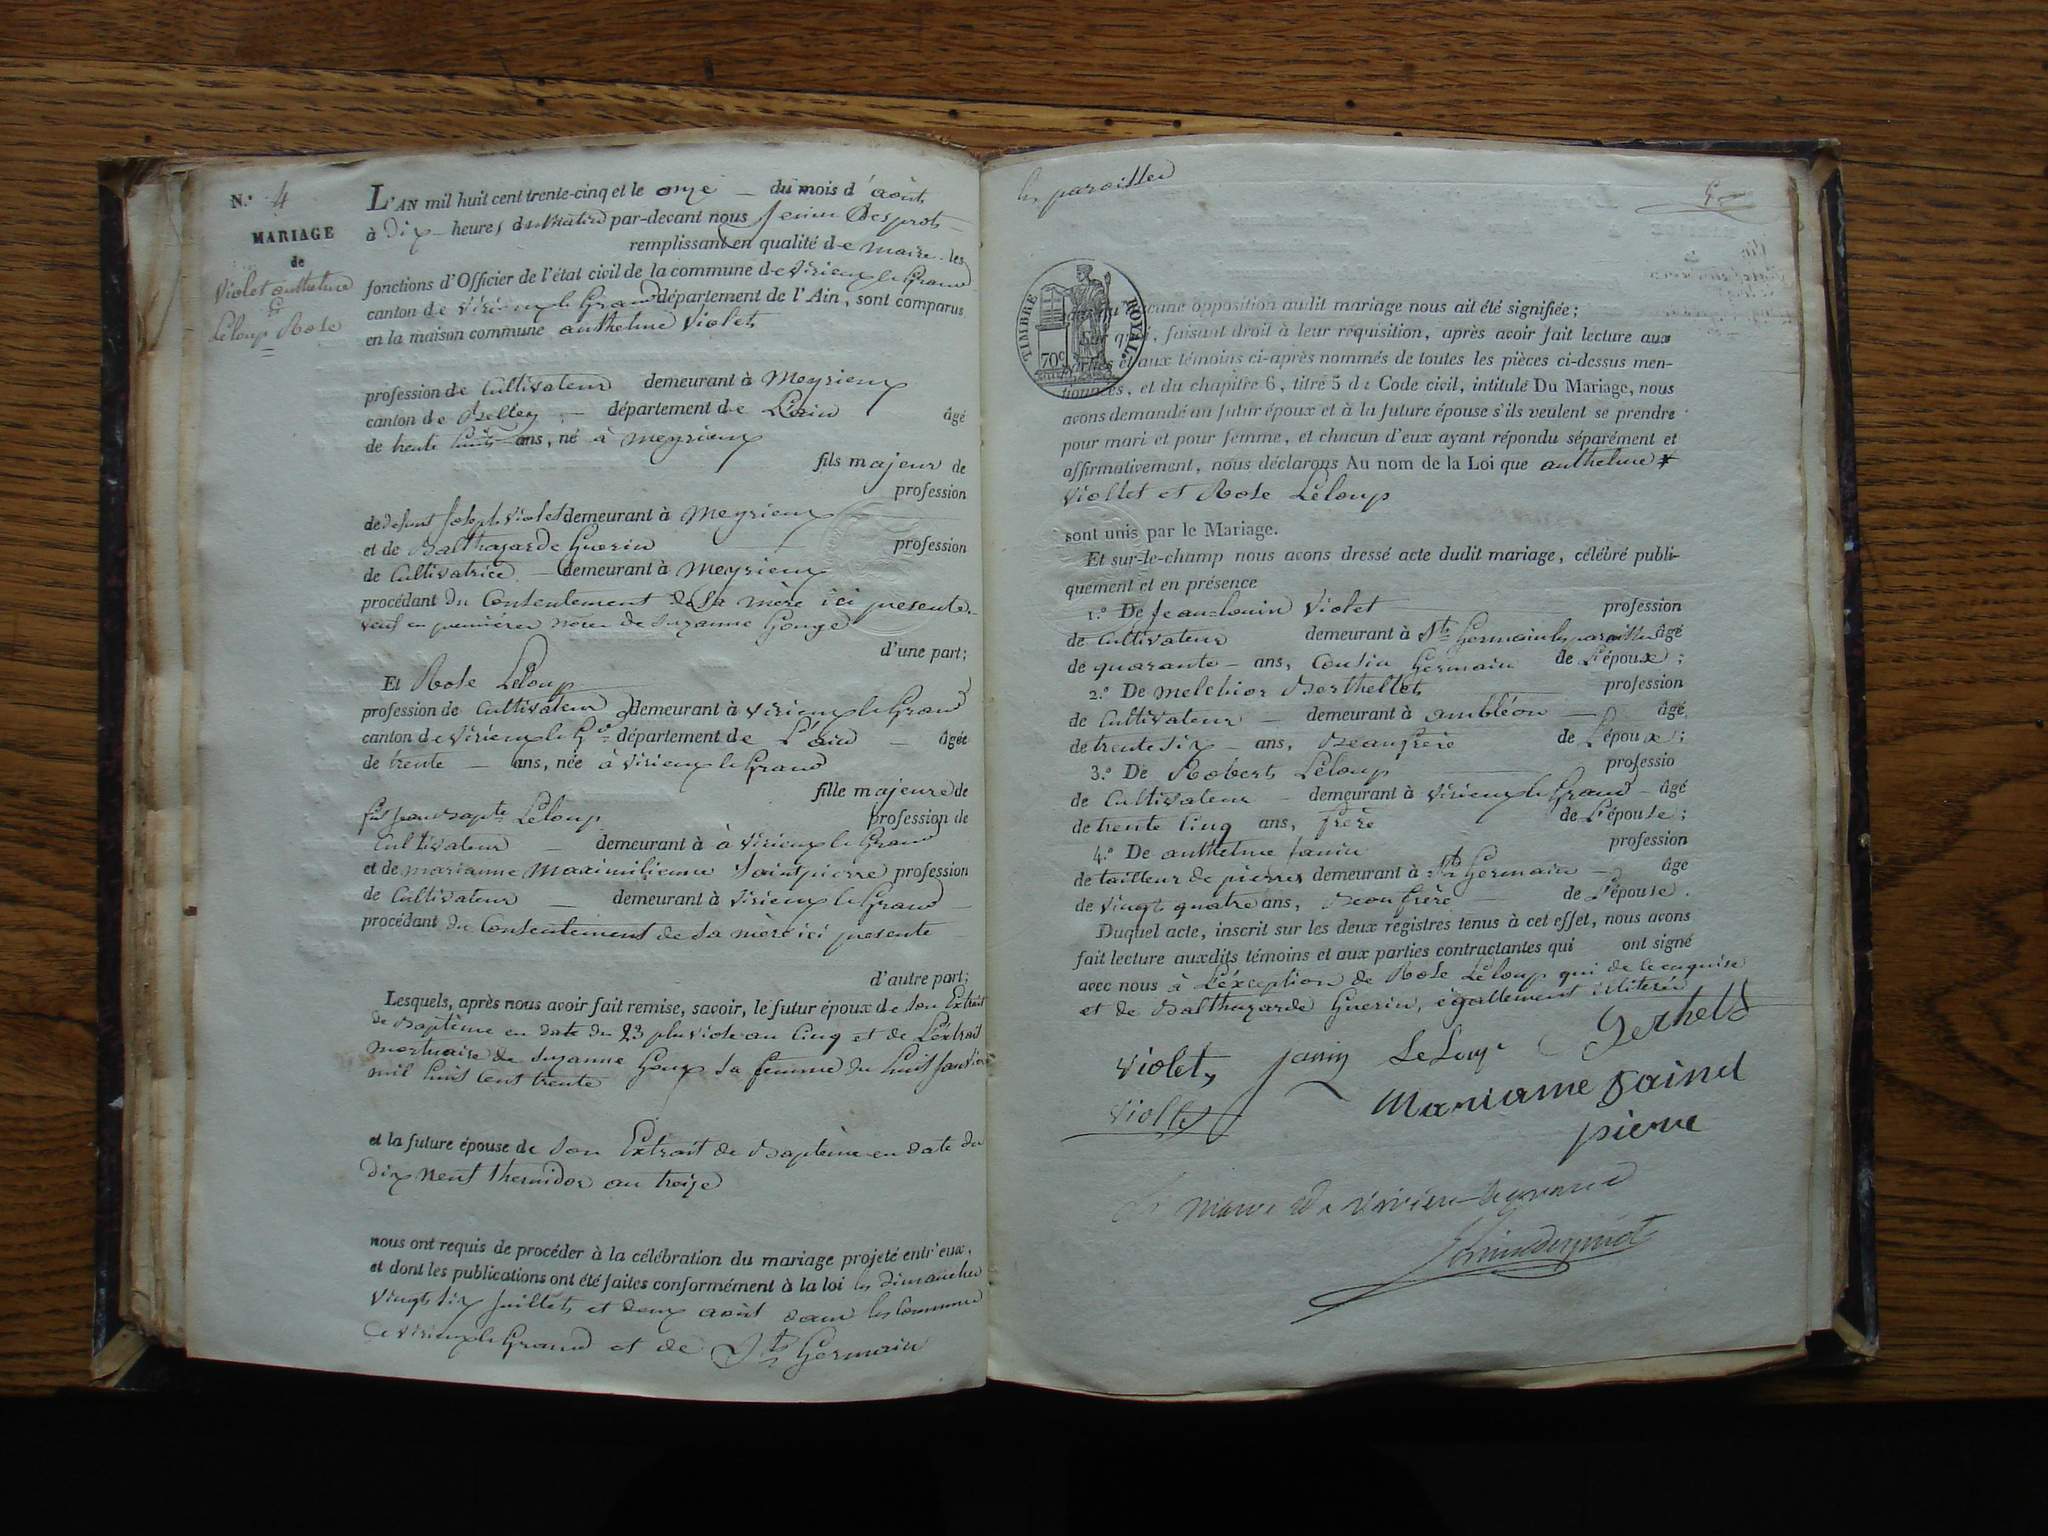 N.° 4
MARIAGE
de
Violet anthelme
et
Leloup Rose
L'AN mil huit cent trente-cinq et le onze du mois d'août
à Dix heures du Matin par-devant nous
remplissant en qualité de maire les
fonctions d'Officier de l'état civil de la commune de virieux le Grand
canton de virieux le Grand département de l'Ain, sont comparus
en la maison commune anthelme Violet
profession de Cultivateur demeurant à Meyrieux
canton de Belley département de L'ain âgé
de trente huit ans, né à meyrieux
fils majeur de
profession
de defunt Joseph Violet demeurant à Meyrieux
et de Balthazarde Guerin profession
de Cultivatrice demeurant à Meyrieux
procédant du Consentement de Sa mère ici presente
veuf en premières noces de Suzanne
d'une part;
Et Rose Leloup
profession de Cultivateur demeurant à virieux le Grand
canton de virieux le Gd département de L'ain âgée
de trente ans, née à virieux le Grand
fille majeure de
fut jean Bapte Leloup profession de
Cultivateur demeurant à à virieux le Grand
et de marianne Maximilienne Saintpierre profession
de Cultivateur demeurant à virieux le Grand
procédant du Consentement de Sa mère ici presente
d'autre part;
Lesquels, après nous avoir fait remise, savoir, le futur époux de Son Extrait
de Baptème en date du 23 pluviose an Cinq et de L'extrait
mortuaire de Suzanne Sa femme du huit Janvier
mil huit Cent trente
et la future épouse de Son Extrait de Baptème en date du
Dix Neuf thermidor an treize
nous ont requis de procéder à la célébration du mariage projeté entr'eux,
et dont les publications ont été faites conformément à la loi les dimanches
Vingt Six Juillet et deux août dans les Communes
de virieux le Grand et de St Germain
les paroisses
5
TIMBRE ROYAL
70c
aucune opposition audit mariage nous ait été signifiée;
Sur quoi, faisant droit à leur réquisition, après avoir fait lecture aux
parties et aux témoins ci-après nommés de toutes les pièces ci-dessus men-
tionnées, et du chapitre 6, titre 5 de Code civil, intitulé Du Mariage, nous
avons demandé au futur époux et à la future épouse s'ils veulent se prendre
pour mari et pour femme, et chacun d'eux ayant répondu séparément et
affirmativement, nous déclarons Au nom de la Loi que anthelme
Viollet et Rose Leloup
sont unis par le Mariage.
Et sur-le-champ nous avons dressé acte dudit mariage, célébré publi-
quement et en présence
1.° De Jean-louis Violet profession
de Cultivateur demeurant à St Germain les paroisses âgé
de quarante ans, Cousin Germain de L'époux;
2.° De melchior Berthellet profession
de Cultivateur demeurant à ambléon âgé
de trente Six ans, Beaufrère de L'époux;
3.° De Robert Leloup professio
de Cultivateur demeurant à virieux le Grand âgé
de trente Cinq ans, frère de L'épouse;
4.° De anthelme Janin profession
de tailleur de pierres demeurant à St Germain âgé
de vingt quatre ans, Beaufrère de L'épouse.
Duquel acte, inscrit sur les deux régistres tenus à cet effet, nous avons
fait lecture auxdits témoins et aux parties contractantes qui ont signé
avec nous à L'éxception de Rose Leloup qui de ce enquise
et de Balthazarde Guerin, égallement illiterée
violet janin LeLoup Berthelet
viollet Marianne Saint
pierre
Le Maire de virieu le grand